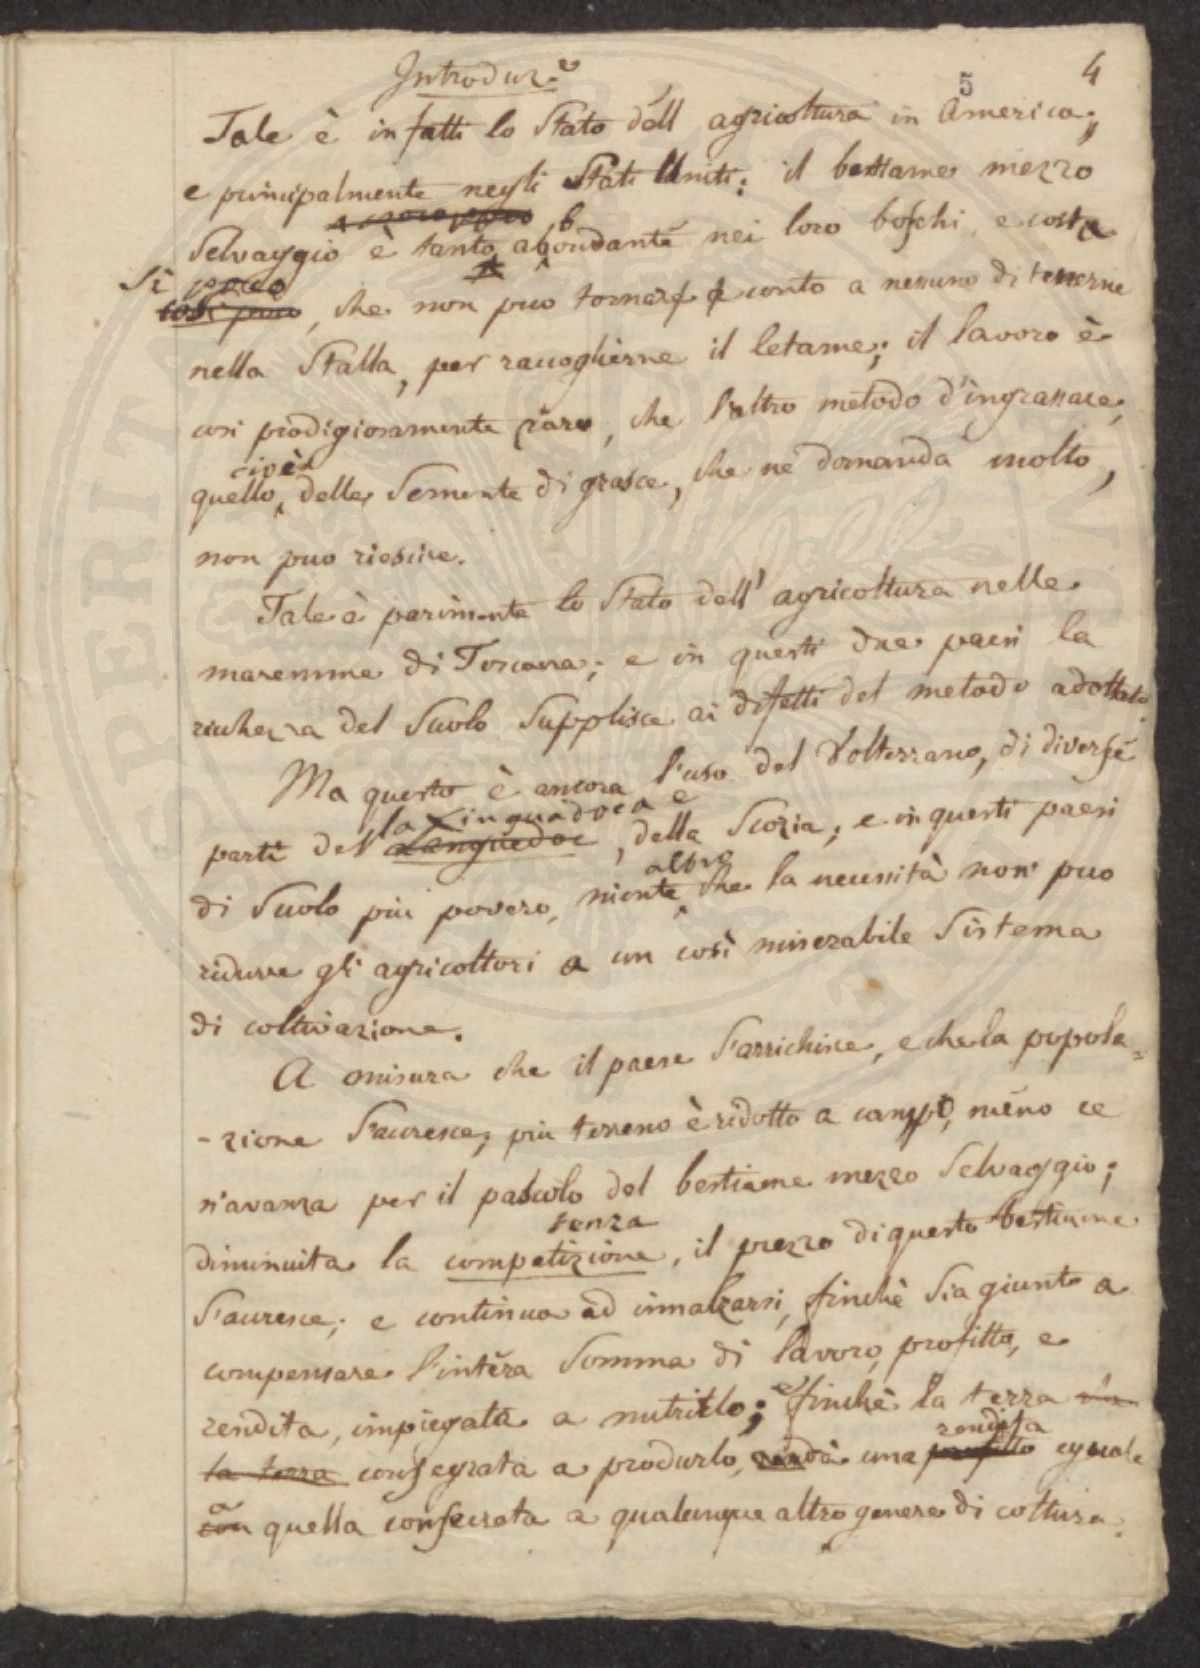 Introduz.e
5 4
Tale è infatti lo Stato dell agricoltura in America;
e principalmente negli Stati Uniti: il bestiame mezzo
Selvaggio è tanto abbondante nei loro boschi, e costa
Si poco
così poco, che non può tornar conto a nessuno di tenerne
nella Stalla, per raccoglierne il letame; il lavoro è
così prodigiosamente raro, che l'altro metodo d'ingrassare,
cioè
quello, delle Semente di grasce, che ne domanda molto,
non puo riescire.
Tale è parimente lo Stato dell' agricoltura nelle
maremme di Toscana; e in questi due paesi la
richezza del Suolo Supplisce ai difetti del metodo adottato.
Ma questo è ancora l'uso del Volterrano, di diverse
la Linguadoca e
parti del Languedoc, della Scozia; e in questi paesi
altro
di Suolo più povero, niente che la necessità non puo
ridurre gli agricoltori a un così miserabile Sistema
di coltivazione.
A misura che il paese S'arrichisce, e che la popola=
-zione S'accresce, più terreno è ridotto a campo, meno ce
n'avanza per il pascolo del bestiame mezzo Selvaggio;
tenza
diminuita la competizione, il prezzo di questo bestiame
S'accresce; e continua ad innalzarsi, finchè Sia giunto a
compensare l'intera Somma di lavoro, profitto, e
rendita, impiegata a nutrirlo; e finchè la terra
rendita
la terra consegrata a produrlo, renda una profitto eguale
a
con quella consecrata a qualunque altro genere di coltura.